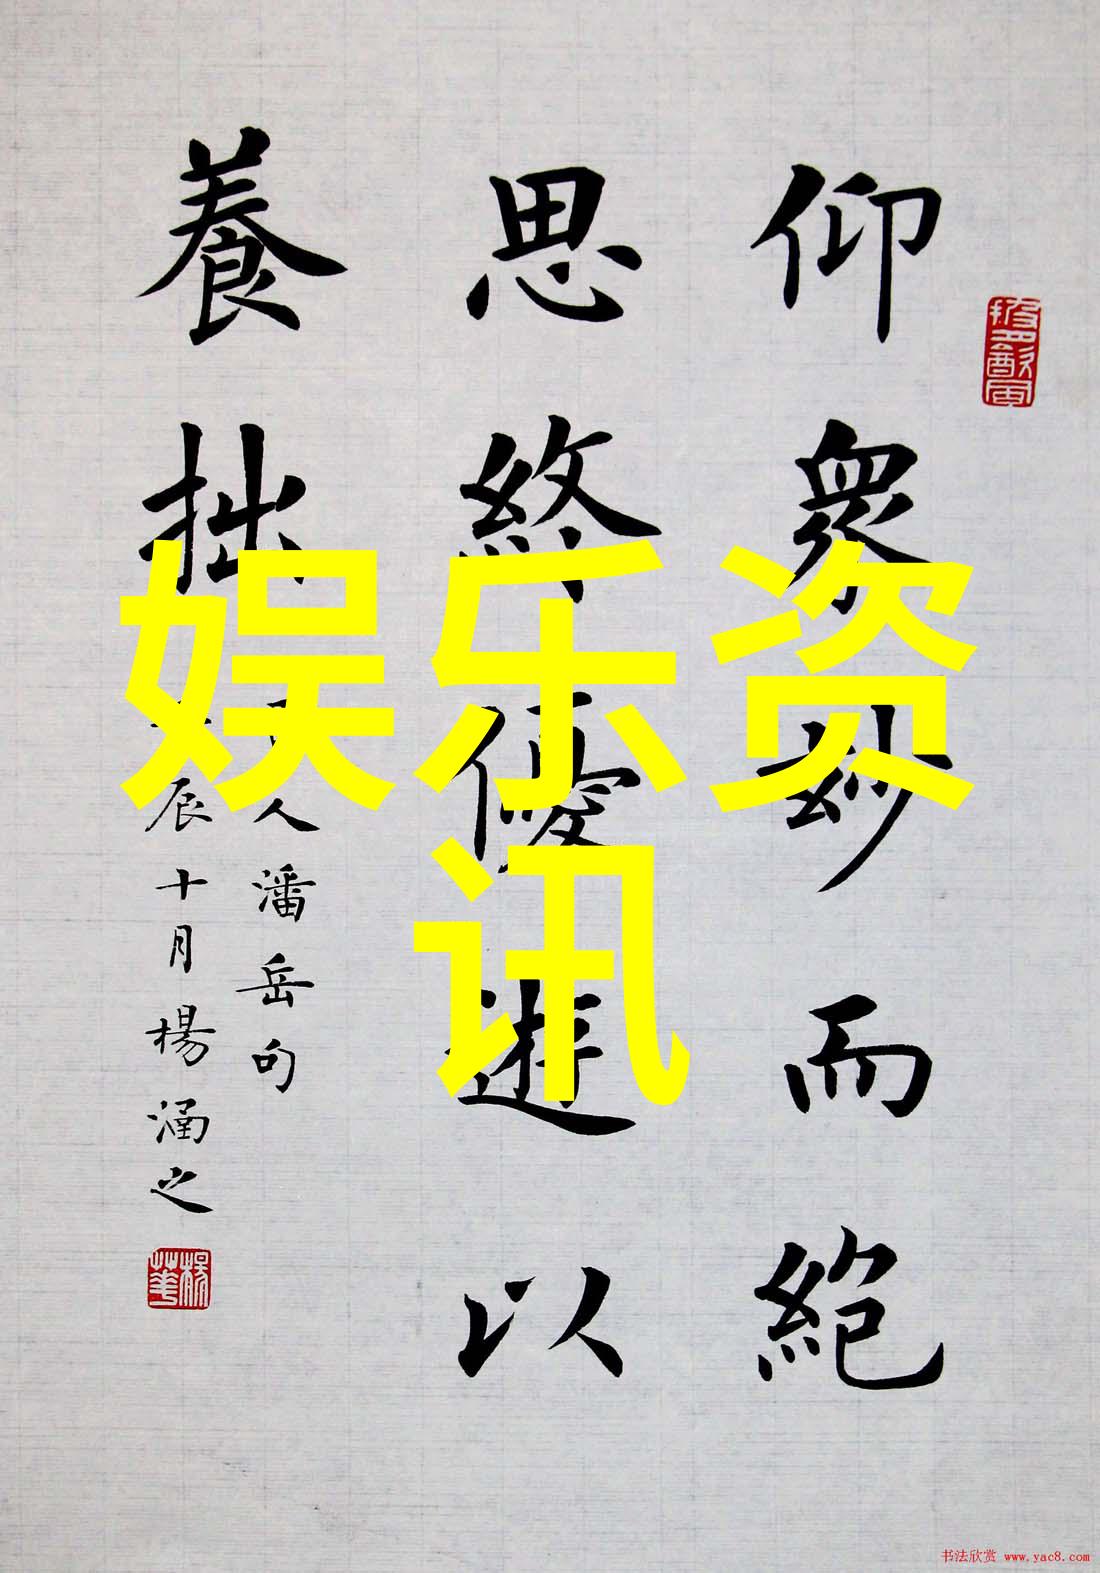 仰衆妙而絶
思終優遊以
養拙
人潘岳句
辰十月楊涵之
娱乐资
讯
书法欣赏 www.yac8.com